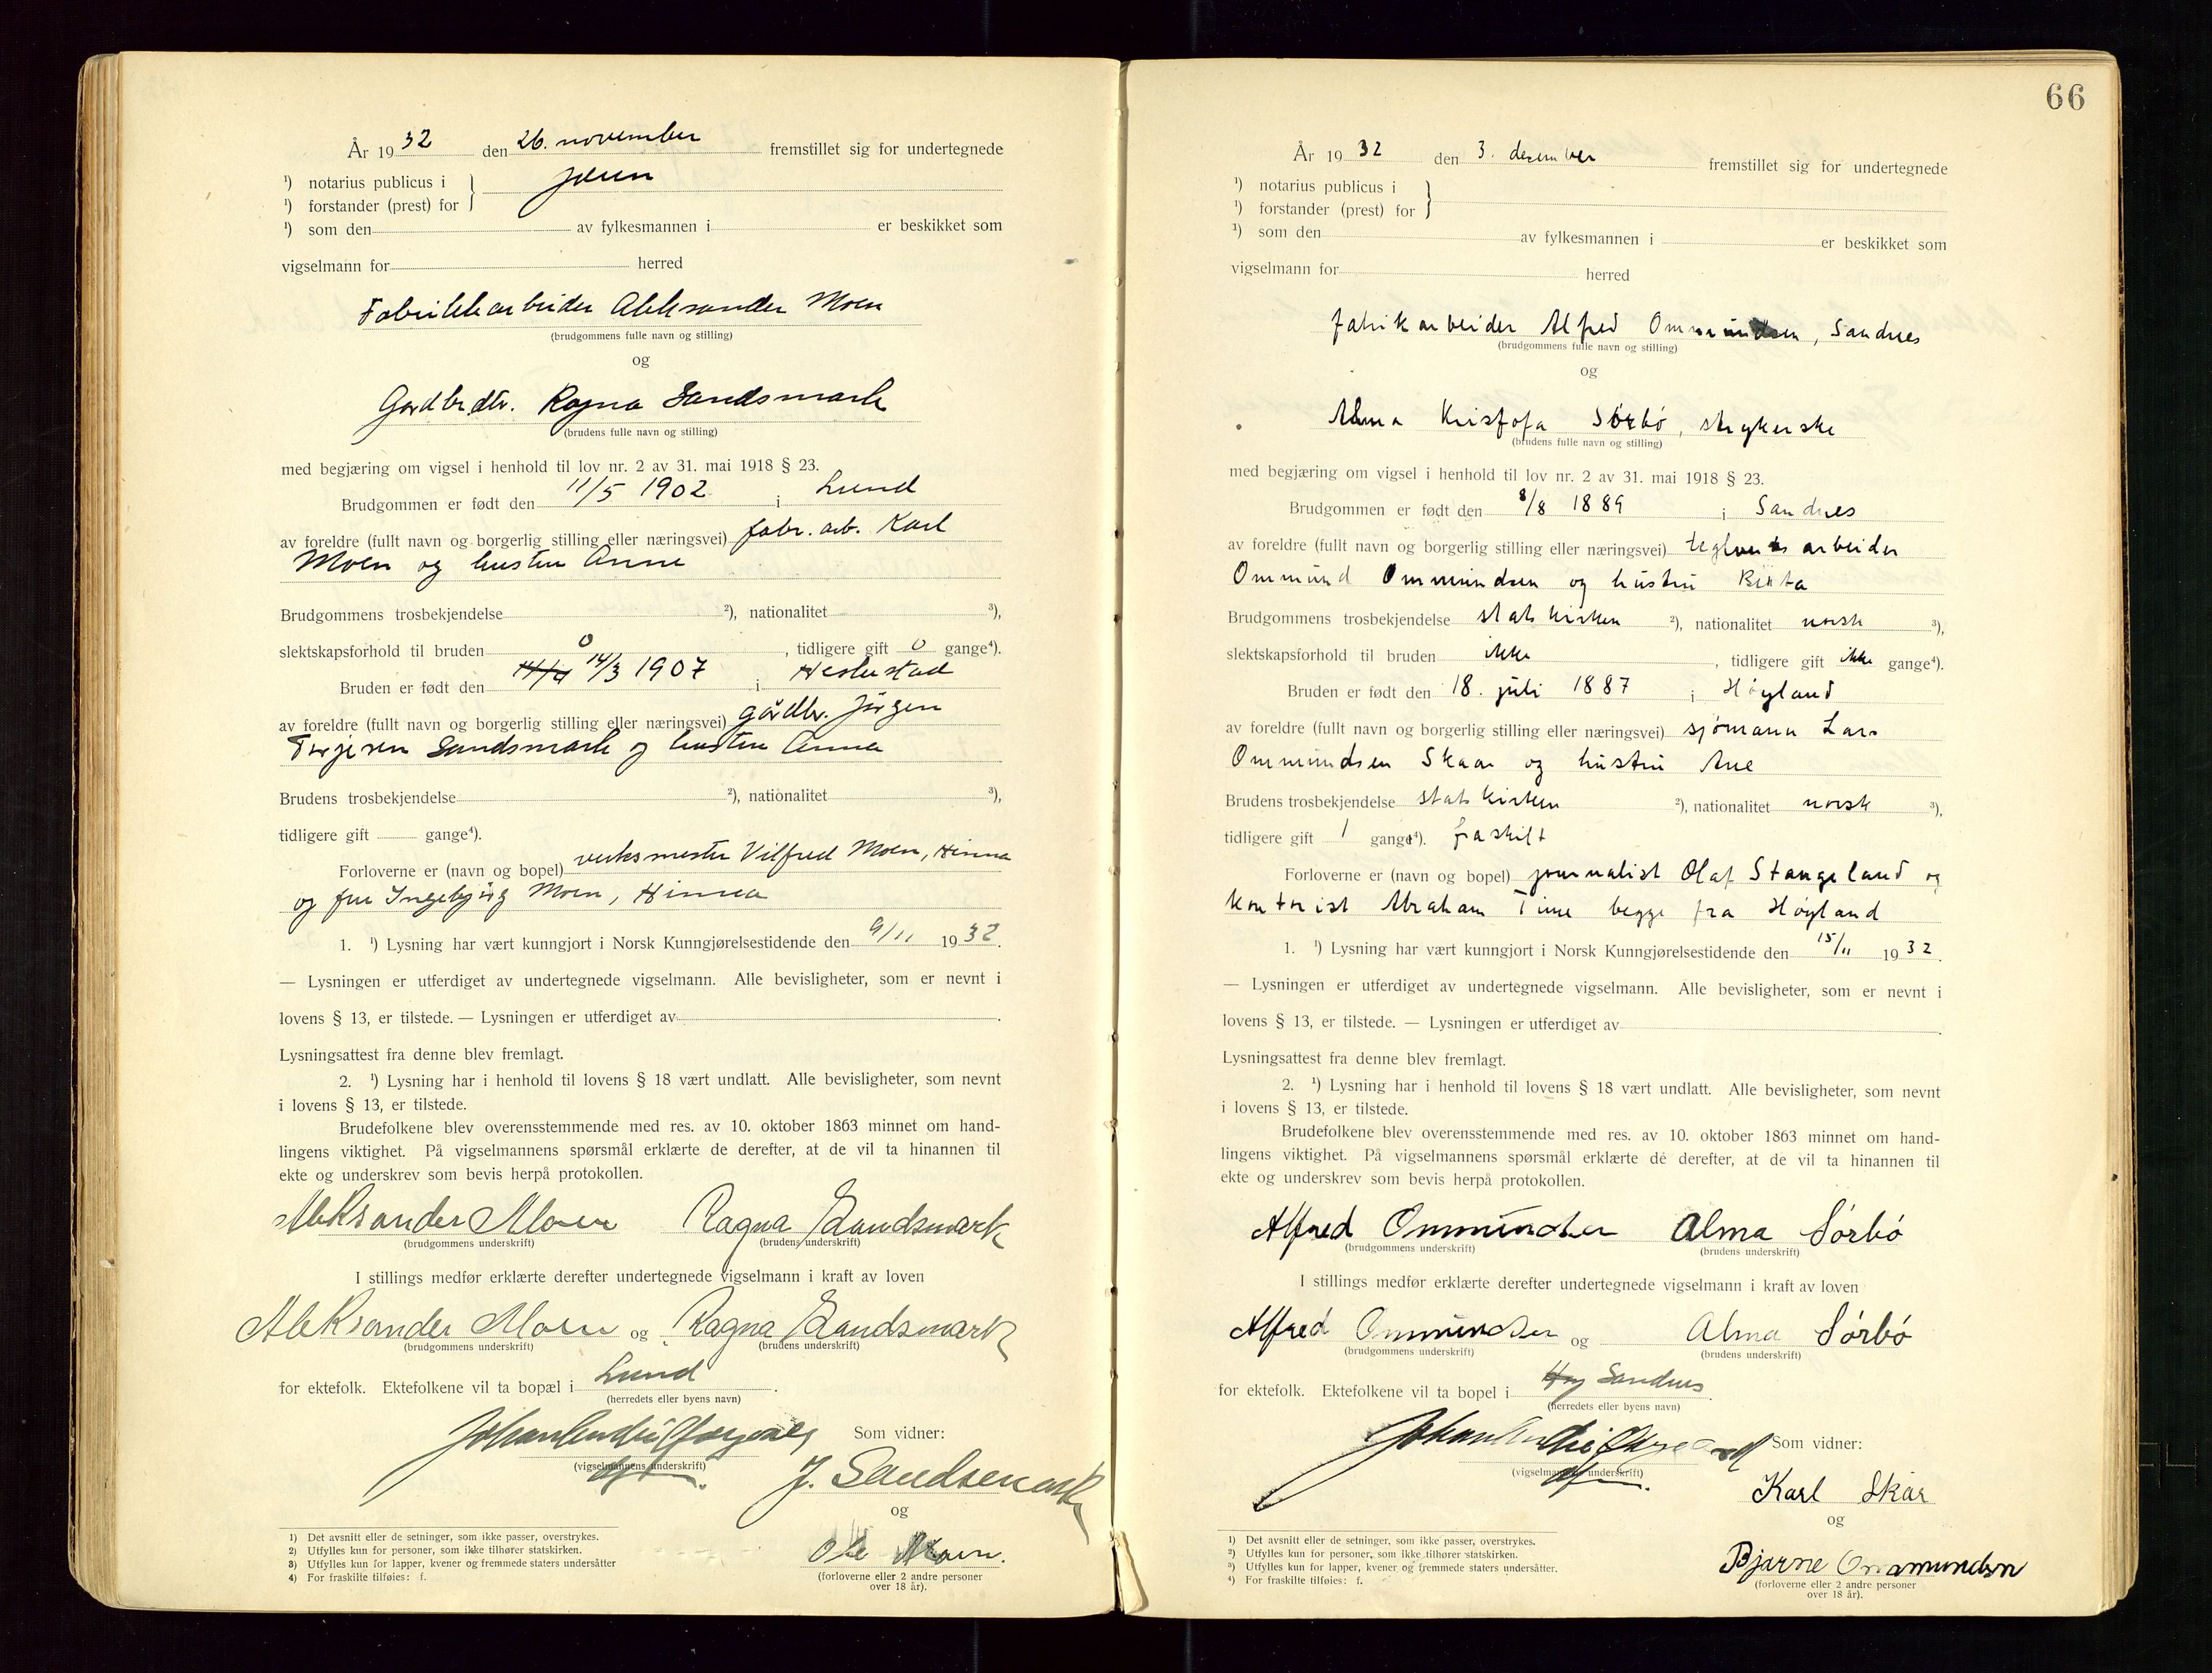 År 1932 den 26. november fremstillet sig for undertegnede
¹) notarius publicus i } Jæren
¹) forstander (prest) for
¹) som den av fylkesmannen i er beskikket som
vigselmann for herred
Fabrikkarbeider Aleksander Moen
(brudgommens fulle navn og stilling)
og
Gårdbr.dtr. Ragna Sandsmark
(brudens fulle navn og stilling)
med begjæring om vigsel i henhold til lov nr. 2 av 31. mai 1918 § 23.
Brudgommen er født den 11/5 1902 i Lund
av foreldre (fullt navn og borgerlig stilling eller næringsvei) fabr. arb. Karl
Moen og hustru Anne
Brudgommens trosbekjendelse ²), nationalitet ³),
slektskapsforhold til bruden 0, tidligere gift 0 gange⁴).
Bruden er født den 14/3 1907 i Heskestad
av foreldre (fullt navn og borgerlig stilling eller næringsvei) gårdbr. Jörgen
Torjesen Sandsmark og hustru Anna
Brudens trosbekjendelse ²), nationalitet ³),
tidligere gift gange⁴).
Forloverne er (navn og bopel) verksmester Vilfred Moen, Hinna
og fru Ingebjörg Moen, Hinna
1. ¹) Lysning har vært kunngjort i Norsk Kunngjørelsestidende den 9/11 1932.
— Lysningen er utferdiget av undertegnede vigselmann. Alle bevisligheter, som er nevnt i
lovens § 13, er tilstede. — Lysningen er utferdiget av .
Lysningsattest fra denne blev fremlagt.
2. ¹) Lysning har i henhold til lovens § 18 vært undlatt. Alle bevisligheter, som nevnt
i lovens § 13, er tilstede.
Brudefolkene blev overensstemmende med res. av 10. oktober 1863 minnet om hand-
lingens viktighet. På vigselmannens spørsmål erklærte de derefter, at de vil ta hinannen til
ekte og underskrev som bevis herpå protokollen.
Aleksander Moen Ragna Sandsmark
(brudgommens underskrift) (brudens underskrift)
I stillings medfør erklærte derefter undertegnede vigselmann i kraft av loven
Aleksander Moen og Ragna Sandsmark
(brudgommens underskrift) (brudens underskrift)
for ektefolk. Ektefolkene vil ta bopæl i Lund .
(herredets eller byens navn)
Som vidner:
(vigselmannens underskrift)
J. Sandsmark
og
Ole Moen.
(forloverne eller 2 andre personer
over 18 år).
1) Det avsnitt eller de setninger, som ikke passer, overstrykes.
2) Utfylles kun for personer, som ikke tilhører statskirken.
3) Utfylles kun for lapper, kvener og fremmede staters undersåtter
4) For fraskilte tilføies: f.
66
År 1932 den 3. desember fremstillet sig for undertegnede
¹) notarius publicus i }
¹) forstander (prest) for
¹) som den av fylkesmannen i er beskikket som
vigselmann for herred
fabrikarbeider Alfred Ommundsen, Sandnes
(brudgommens fulle navn og stilling)
og
Alma Kristofa Sörbö, strykerske
(brudens fulle navn og stilling)
med begjæring om vigsel i henhold til lov nr. 2 av 31. mai 1918 § 23.
Brudgommen er født den 8/8 1889 i Sandnes
av foreldre (fullt navn og borgerlig stilling eller næringsvei) teglverksarbeider
Ommund Ommundsen og hustru Berta
Brudgommens trosbekjendelse statskirken ²), nationalitet norsk ³),
slektskapsforhold til bruden ikke, tidligere gift ikke gange⁴).
Bruden er født den 18. juli 1887 i Höyland
av foreldre (fullt navn og borgerlig stilling eller næringsvei) sjömann Lars
Ommundsen Skaar og hustru Ane
Brudens trosbekjendelse statskirken ²), nationalitet norsk ³),
tidligere gift 1 gange⁴). fraskilt
Forloverne er (navn og bopel) journalist Olaf Stangeland og
kontorist Abraham Time begge fra Höyland
1. ¹) Lysning har vært kunngjort i Norsk Kunngjørelsestidende den 15/11 1932.
— Lysningen er utferdiget av undertegnede vigselmann. Alle bevisligheter, som er nevnt i
lovens § 13, er tilstede. — Lysningen er utferdiget av .
Lysningsattest fra denne blev fremlagt.
2. ¹) Lysning har i henhold til lovens § 18 vært undlatt. Alle bevisligheter, som nevnt
i lovens § 13, er tilstede.
Brudefolkene blev overensstemmende med res. av 10. oktober 1863 minnet om hand-
lingens viktighet. På vigselmannens spørsmål erklærte de derefter, at de vil ta hinannen til
ekte og underskrev som bevis herpå protokollen.
Alfred Ommundsen Alma Sörbö
(brudgommens underskrift) (brudens underskrift)
I stillings medfør erklærte derefter undertegnede vigselmann i kraft av loven
Alfred Ommundsen og Alma Sörbö
(brudgommens underskrift) (brudens underskrift)
for ektefolk. Ektefolkene vil ta bopel i Höy Sandnes .
(herredets eller byens navn)
Som vidner:
(vigselmannens underskrift)
Karl Skar
og
Bjarne Ommundsen
(forloverne eller 2 andre personer
over 18 år).
¹) Det avsnitt eller de setninger, som ikke passer, overstrykes.
²) Utfylles kun for personer, som ikke tilhører statskirken.
³) Utfylles kun for lapper, kvener og fremmede staters undersåtter.
⁴) For fraskilte tilføies: f.